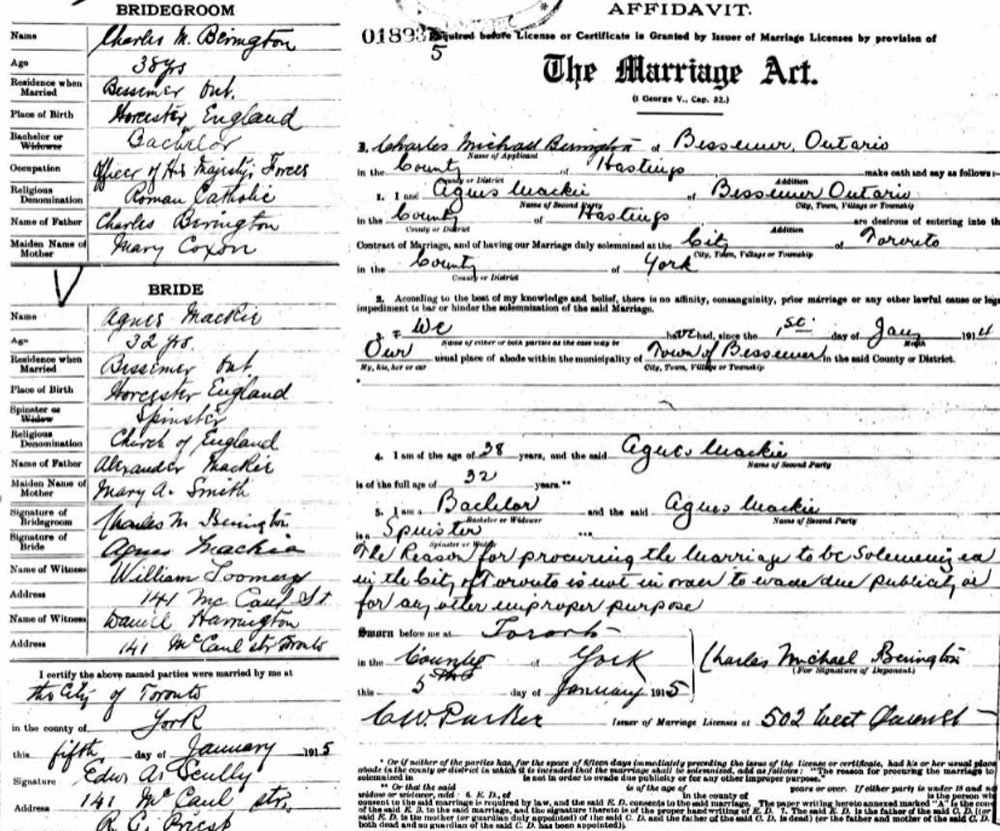 BRIDEGROOM
Name Charles M. Berington
Age 38 yrs
Residence when Married Bessemer Ont.
Place of Birth Worcester England
Bachelor or Widower Bachelor
Occupation Officer of His Majesty's Forces
Religious Denomination Roman Catholic
Name of Father Charles Berington
Maiden Name of Mother Mary Coxon
BRIDE
Name Agnes Mackie
Age 32 yrs.
Residence when Married Bessemer Ont.
Place of Birth Worcester England
Spinster or Widow Spinster
Religious Denomination Church of England
Name of Father Alexander Mackie
Maiden Name of Mother Mary A. Smith
Signature of Bridegroom Charles M Berington
Signature of Bride Agnes Mackie
Name of Witness William Toomey
Address 141 McCaul St
Name of Witness Daniel Harrington
Address 141 McCaul str Toronto
I certify the above named parties were married by me at
the City of Toronto
in the county of York
this fifth day of January 1915
Signature Edw. A. Scully
Address 141 McCaul str.
R. C. Priest
AFFIDAVIT.
018935 Required before License or Certificate is Granted by Issuer of Marriage Licenses by provision of
The Marriage Act.
(1 George V., Cap. 32.)
I, Charles Michael Berington of Bessemer, Ontario
Name of Applicant
in the County of Hastings make oath and say as follows:-
County or District Addition
1. I and Agnes Mackie of Bessemer Ontario
Name of Second Party City, Town, Village or Township
in the County of Hastings are desirous of entering into th
County or District Addition
Contract of Marriage, and of having our Marriage duly solemnized at the City of Toronto
City, Town, Village or Township
in the County of York
County or District
2. According to the best of my knowledge and belief, there is no affinity, consanguinity, prior marriage or any other lawful cause or leg
impediment to bar or hinder the solemnization of the said Marriage.
3. I We have had, since the 1st day of Jany 1914
Name of either or both parties as the case may be Month
Our usual place of abode within the municipality of Town of Bessemer in the said County or District.
My, his, her or our City, Town, Village or Township
4. I am of the age of 38 years, and the said Agnes Mackie
Name of Second Party
is of the full age of 32 years.**
5. I am a Bachelor and the said Agnes Mackie
Bachelor or Widower Name of Second Party
is a Spinster
Spinster or Widow
The Reason for procuring the Marriage to be Solemnized
in the City of Toronto is not in order to evade due publicity or
for any other improper purpose
Sworn before me at Toronto
in the County of York
this 5th day of January 1915
Charles Michael Berington
(For Signature of Deponent)
C.W. Parker Issuer of Marriage Licenses at 502 West Queen St
* Or if neither of the parties has, for the space of fifteen days immediately preceding the issue of the license or certificate, had his or her usual place
abode in the county or district in which it is intended that the marriage shall be solemnized, add as follows: "The reason for procuring the marriage to
solemnized in is not in order to evade due publicity or for any other improper purpose."
** Or that the said is of the age of years or over. If either party is under 18 and no
widow or widower, add: 6. E. D., of in the county of is the person who
consent to the said marriage is required by law, and the said E. D. consents to the said marriage. The paper writing hereto annexed marked "A" is the cons
of the said E. D. to the said marriage, and the signature thereto is of the proper handwriting of E. D. 7. The said E. D. is the father of the said C. D. (or
said E. D. is the mother (or guardian duly appointed) of the said C. D. and the father of the said C. D. is dead) (or the father and mother of the said C. D.
both dead and no guardian of the said C. D. has been appointed).